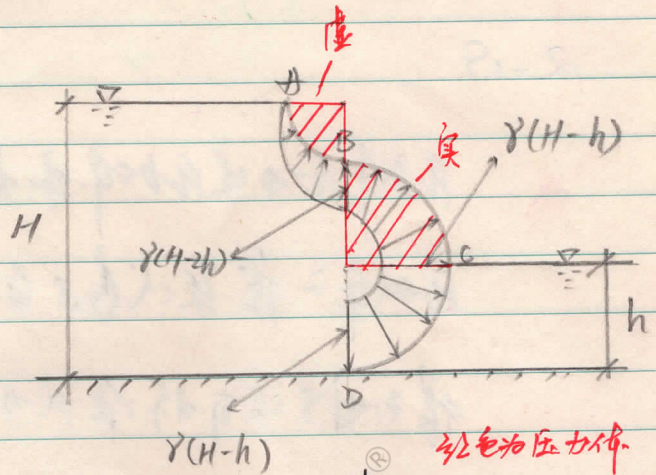 虚
A
实
B
γ(H-h)
H
γ(H-2h)
C
h
D
γ(H-h)
红色为压力体.
®